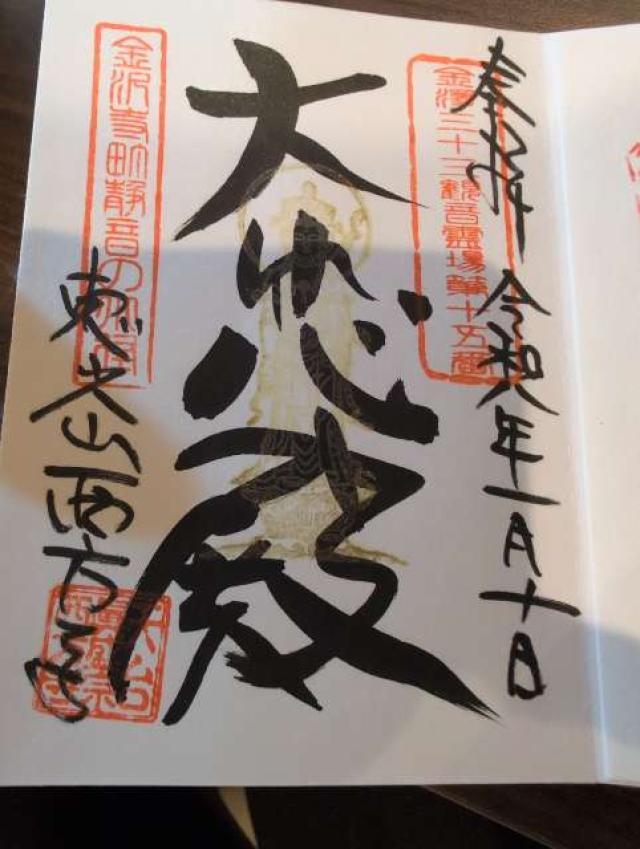 奉拝 令和八年一月十日
金澤三十三観音霊場第十五番
大悲殿
金沢寺町静音の
恵光山西方寺